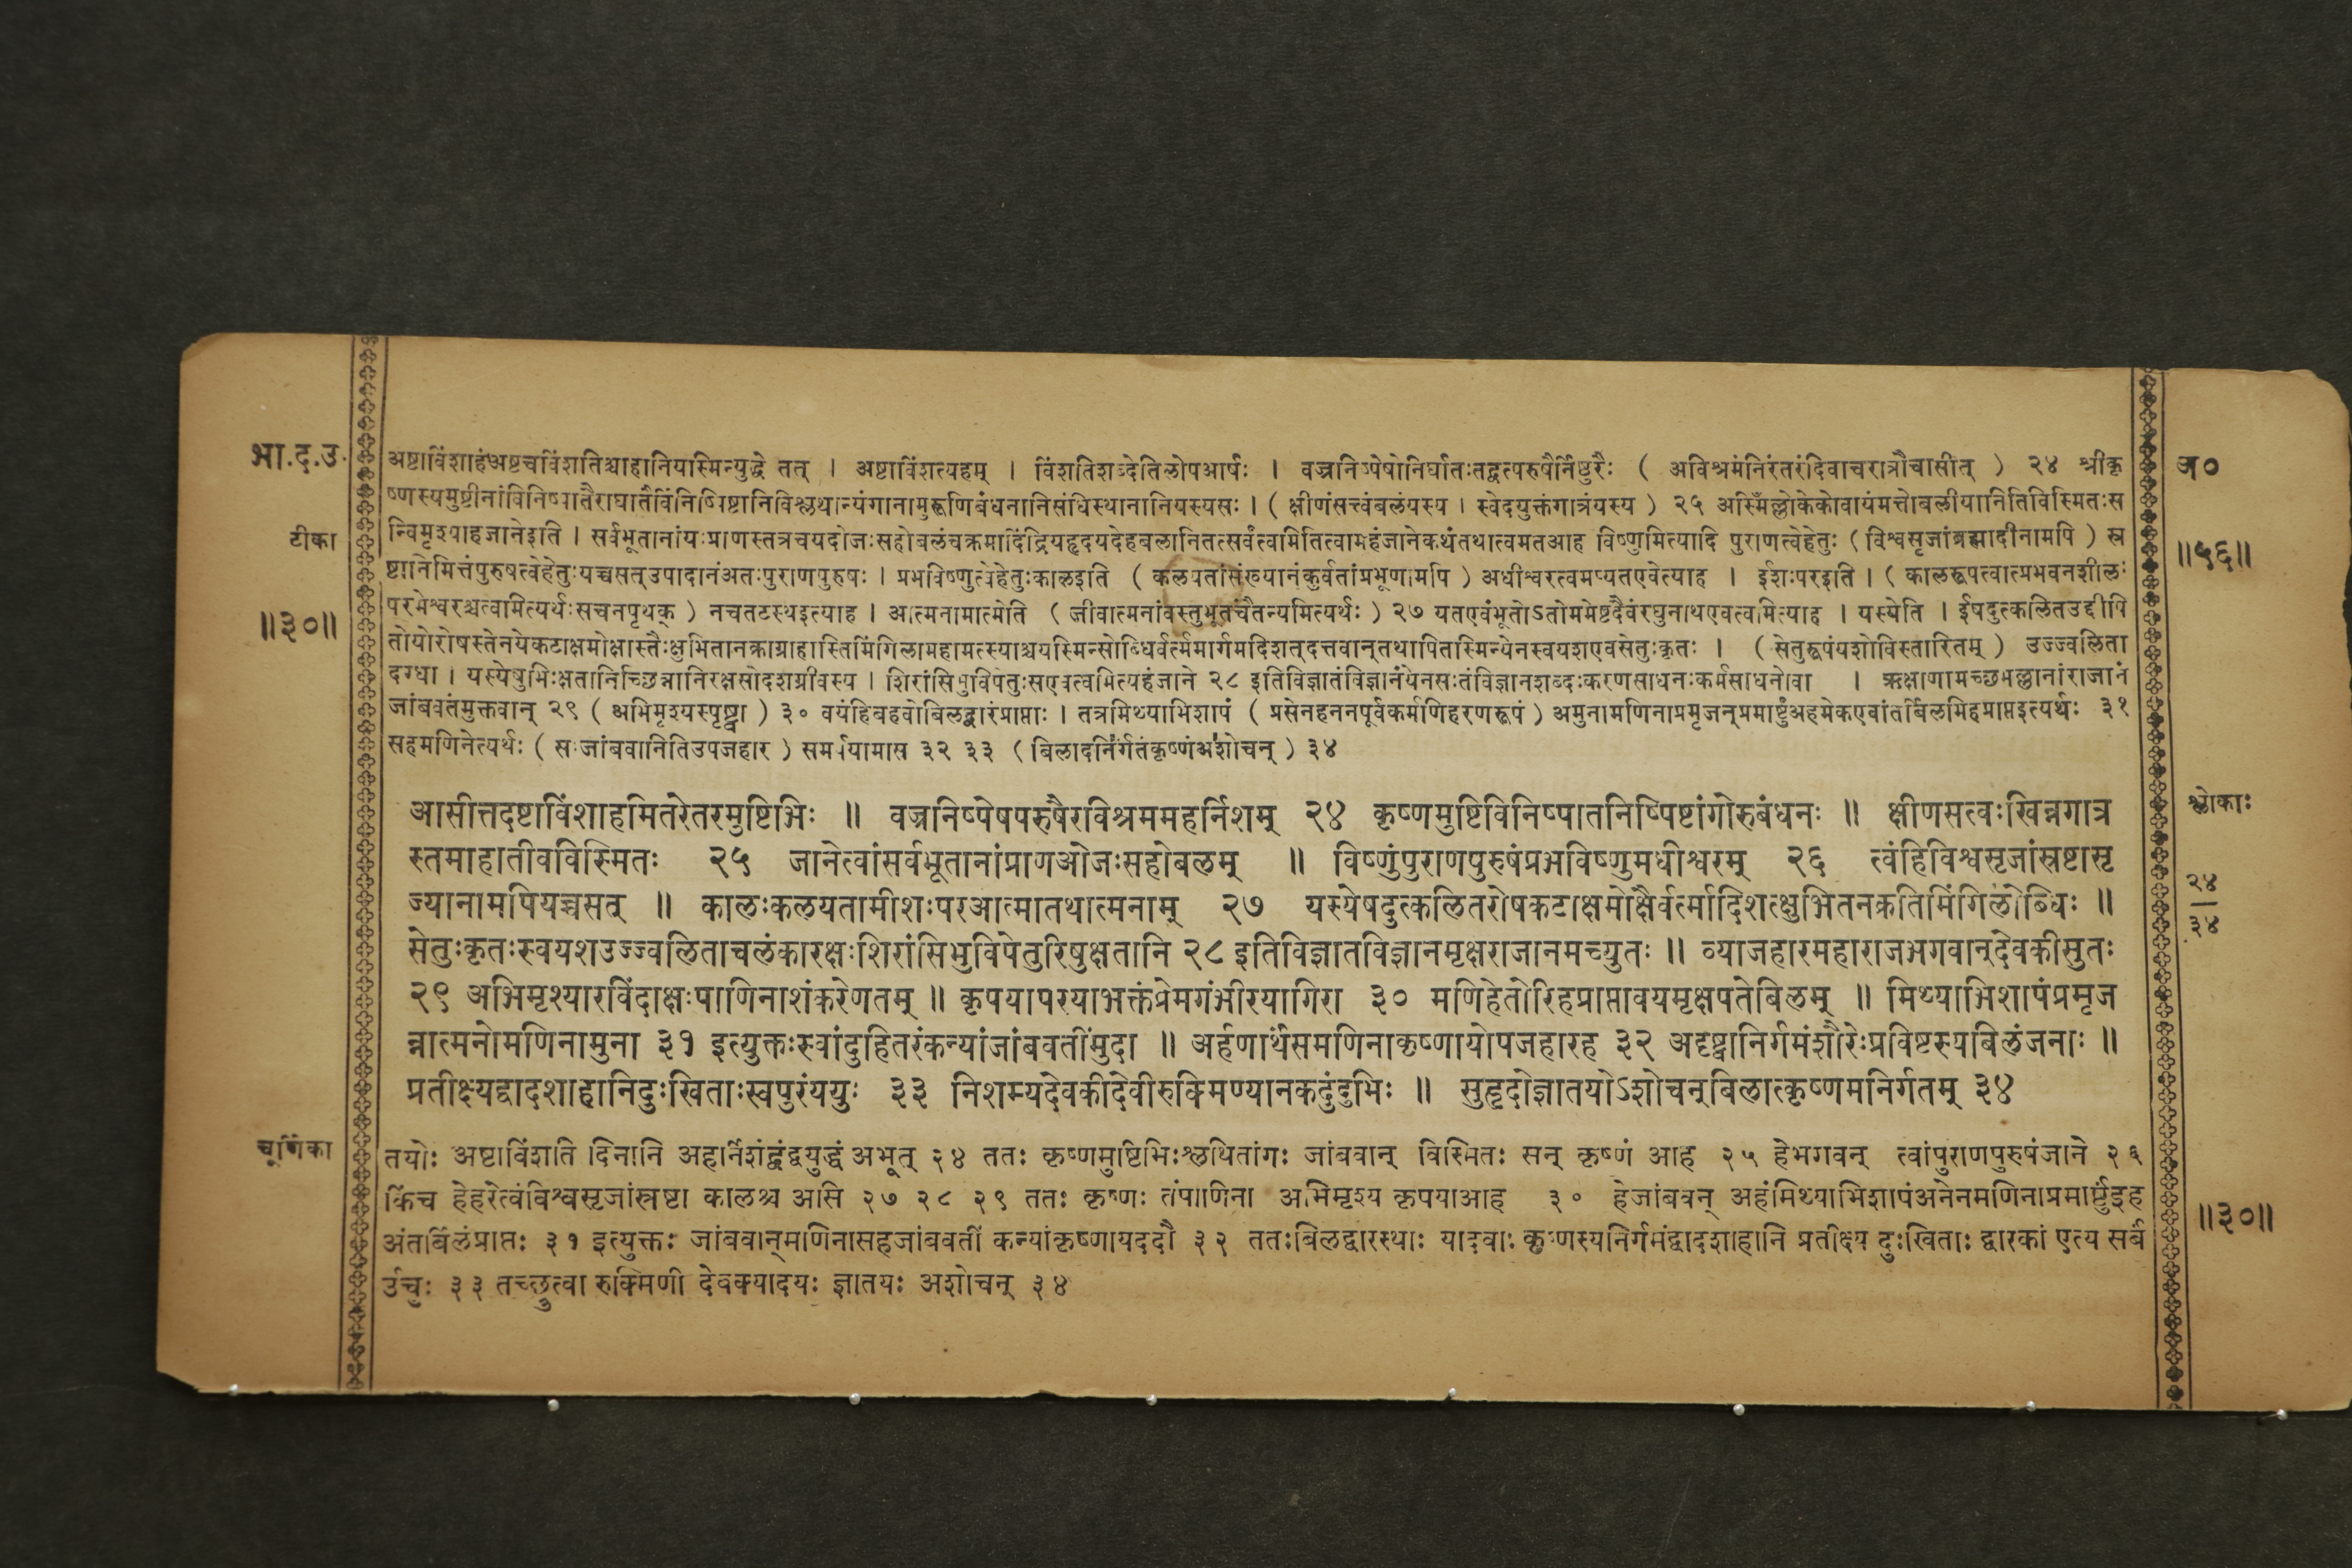 भा.द.उ.
टीका
॥३०॥
अष्टाविंशाहंअष्टचविंशतिश्चाहानियास्मिन्युद्धे तत् । अष्टाविंशत्यहम् । विंशतिशब्देतिलोपआर्षः । वज्रनिष्पेषोनिर्घातःतद्वत्परुषैर्निष्ठुरैः ( अविश्रमंनिरंतरंदिवाचरात्रौचासीत् ) २४ श्रीकृ
ष्णस्यमुष्टीनांविनिष्पातैराघातैर्विनिष्पिष्टानिविश्लथान्यंगानामुरूणिबंधनानिसंधिस्थानानियस्यसः । ( क्षीणंसत्त्वंबलंयस्य । स्वेदयुक्तंगात्रंयस्य ) २५ अस्मिँल्लोकेकोवायंमत्तोबलीयानितिविस्मितःस
न्विमृश्याहजानेइति । सर्वभूतानांयःप्राणस्तत्रचयदोजःसहोबलंचक्रमादिंद्रियहृदयदेहबलानितत्सर्वंत्वमितित्वामहंजानेकथंतथात्वमतआह विष्णुमित्यादि पुराणत्वेहेतुः ( विश्वसृजांब्रह्मादीनामपि ) स्र
ष्टानिमित्तंपुरुषत्वेहेतुःयच्चसत्उपादानंअतःपुराणपुरुषः । प्रभविष्णुत्वेहेतुःकालइति ( कलयतांसंख्यानंकुर्वतांप्रभूणामपि ) अधीश्वरत्वमप्यतएवेत्याह । ईशःपरइति । ( कालरूपत्वात्प्रभवनशीलः
परमेश्वरश्चत्वामित्यर्थःसचनपृथक् ) नचतटस्थइत्याह । आत्मनामात्मेति ( जीवात्मनांवस्तुभूतचैतन्यमित्यर्थः ) २७ यतएवंभूतोऽतोममेष्टदैवंरघुनाथएवत्वमित्याह । यस्येति । ईषदुत्कलितउद्दीपि
तोयोरोषस्तेनयेकटाक्षमोक्षास्तैःक्षुभितानक्राग्राहास्तिमिंगिलामहामत्स्याश्चयस्मिन्सोब्धिर्वर्त्ममार्गमदिशत्दत्तवान्तथापितस्मिन्येनस्वयशएवसेतुःकृतः । ( सेतुरूपंयशोविस्तारितम् ) उज्ज्वलिता
दग्धा । यस्येषुभिःक्षतानिच्छिन्नानिरक्षसोदशग्रीवस्य । शिरांसिभुविपेतुःसएवत्वमित्यहंजाने २८ इतिविज्ञातंविज्ञानंयेनसःतंविज्ञानशब्दःकरणसाधनःकर्मसाधनोवा । ऋक्षाणामच्छभल्लानांराजानं
जांबवंतंमुक्तवान् २९ ( अभिमृश्यस्पृष्ट्वा ) ३० वयंहिबहवोबिलद्वारंप्राप्ताः । तत्रमिथ्याभिशापं ( प्रसेनहननपूर्वकर्मणिहरणरूपं ) अमुनामणिनाप्रमृजन्प्रमार्ष्टुंअहमेकएवांतर्बिलमिहप्राप्तइत्यर्थः ३१
सहमणिनेत्यर्थः ( सःजांबवानितिउपजहार ) समर्पयामास ३२ ३३ ( बिलादनिर्गतंकृष्णंअशोचन् ) ३४
अ०
॥५६॥
आसीत्तदष्टाविंशाहमितरेतरमुष्टिभिः ॥ वज्रनिष्पेषपरुषैरविश्रममहर्निशम् २४ कृष्णमुष्टिविनिष्पातनिष्पिष्टांगोरुबंधनः ॥ क्षीणसत्वःखिन्नगात्र
स्तमाहातीवविस्मितः २५ जानेत्वांसर्वभूतानांप्राणओजःसहोबलम् ॥ विष्णुंपुराणपुरुषंप्रभविष्णुमधीश्वरम् २६ त्वंहिविश्वसृजांस्रष्टासृ
ज्यानामपियच्चसत् ॥ कालःकलयतामीशःपरआत्मातथात्मनाम् २७ यस्येषदुत्कलितरोषकटाक्षमोक्षैर्वर्त्मादिशत्क्षुभितनक्रतिमिंगिलोब्धिः ॥
सेतुःकृतःस्वयशउज्ज्वलिताचलंकारक्षःशिरांसिभुविपेतुरिषुक्षतानि २८ इतिविज्ञातविज्ञानमृक्षराजानमच्युतः ॥ व्याजहारमहाराजभगवान्देवकीसुतः
२९ अभिमृश्यारविंदाक्षःपाणिनाशंकरेणतम् ॥ कृपयापरयाभक्तंप्रेमगंभीरयागिरा ३० मणिहेतोरिहप्राप्तावयमृक्षपतेबिलम् ॥ मिथ्याभिशापंप्रमृज
न्नात्मनोमणिनामुना ३१ इत्युक्तःस्वांदुहितरंकन्यांजांबवतींमुदा ॥ अर्हणार्थंसमणिनाकृष्णायोपजहारह ३२ अदृष्ट्वानिर्गमंशौरेःप्रविष्टस्यबिलंजनाः ॥
प्रतीक्ष्यद्वादशाहानिदुःखिताःस्वपुरंययुः ३३ निशम्यदेवकीदेवीरुक्मिण्यानकदुंदुभिः ॥ सुहृदोज्ञातयोऽशोचन्बिलात्कृष्णमनिर्गतम् ३४
श्लोकाः
२४
३४
चूर्णिका
तयोः अष्टाविंशति दिनानि अहर्निशंद्वंद्वयुद्धं अभूत् २४ ततः कृष्णमुष्टिभिःश्लथितांगः जांबवान् विस्मितः सन् कृष्णं आह २५ हेभगवन् त्वांपुराणपुरुषंजाने २६
किंच हेहरेत्वंविश्वसृजांस्रष्टा कालश्च असि २७ २८ २९ ततः कृष्णः तंपाणिना अभिमृश्य कृपयाआह ३० हेजांबवन् अहंमिथ्याभिशापंअनेनमणिनाप्रमार्ष्टुंइह
अंतर्बिलंप्राप्तः ३१ इत्युक्तः जांबवान्मणिनासहजांबवतीं कन्यांकृष्णायददौ ३२ ततःबिलद्वारस्थाः यादवाः कृष्णस्यनिर्गमंद्वादशाहानि प्रतीक्ष्य दुःखिताः द्वारकां एत्य सर्वं
ऊचुः ३३ तच्छ्रुत्वा रुक्मिणी देवक्यादयः ज्ञातयः अशोचन् ३४
॥३०॥